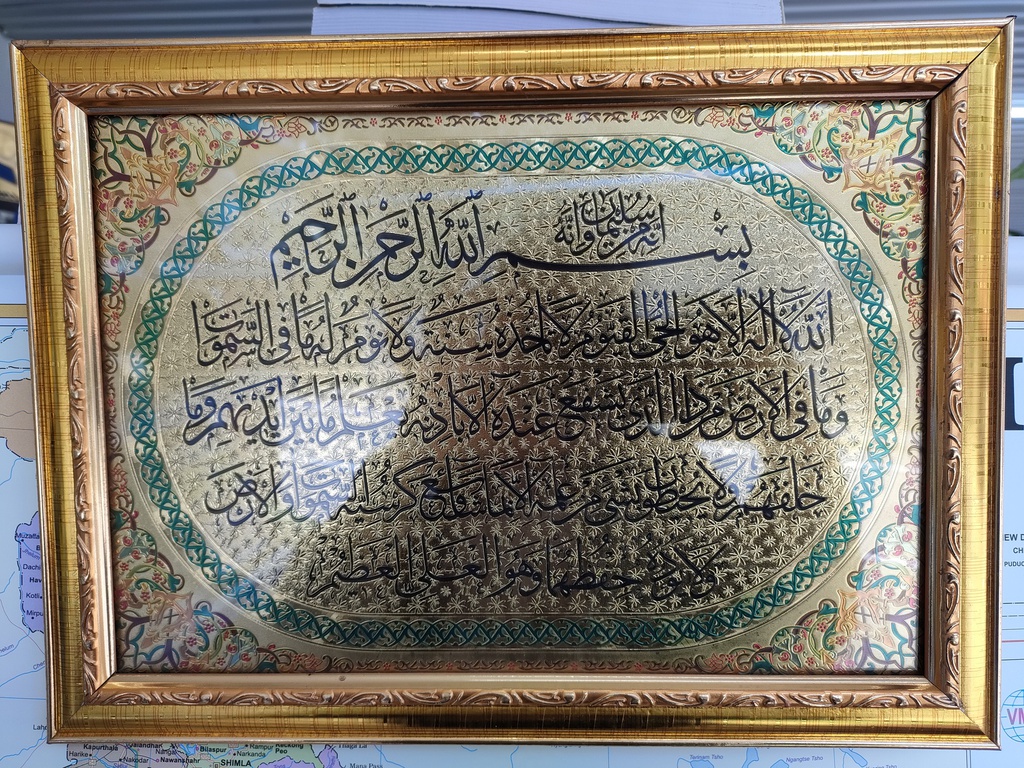 انه من سليمان وانه
بسم الله الرحمن الرحيم
الله لا اله الا هو الحي القيوم لا تاخذه سنة ولا نوم له ما في السموات
وما في الارض من ذا الذي يشفع عنده الا باذنه يعلم ما بين ايديهم وما
خلفهم ولا يحيطون بشئ من علمه الا بما شاء وسع كرسيه السموات والارض
ولا يؤده حفظهما وهو العلي العظيم
Muzaffa
Dachi
Hav
Kotli
Mirpu
Chel
Lahr
Kapurthala
Jalandhar
Harike
Nakodar
Nangal
Nawanshahr
Bilaspur
SHIMLA
Rampur
Narkanda
Reckong
Peo
Mana Pass
Ngangtse Tsho
EW D
CH
PUDUC
VM